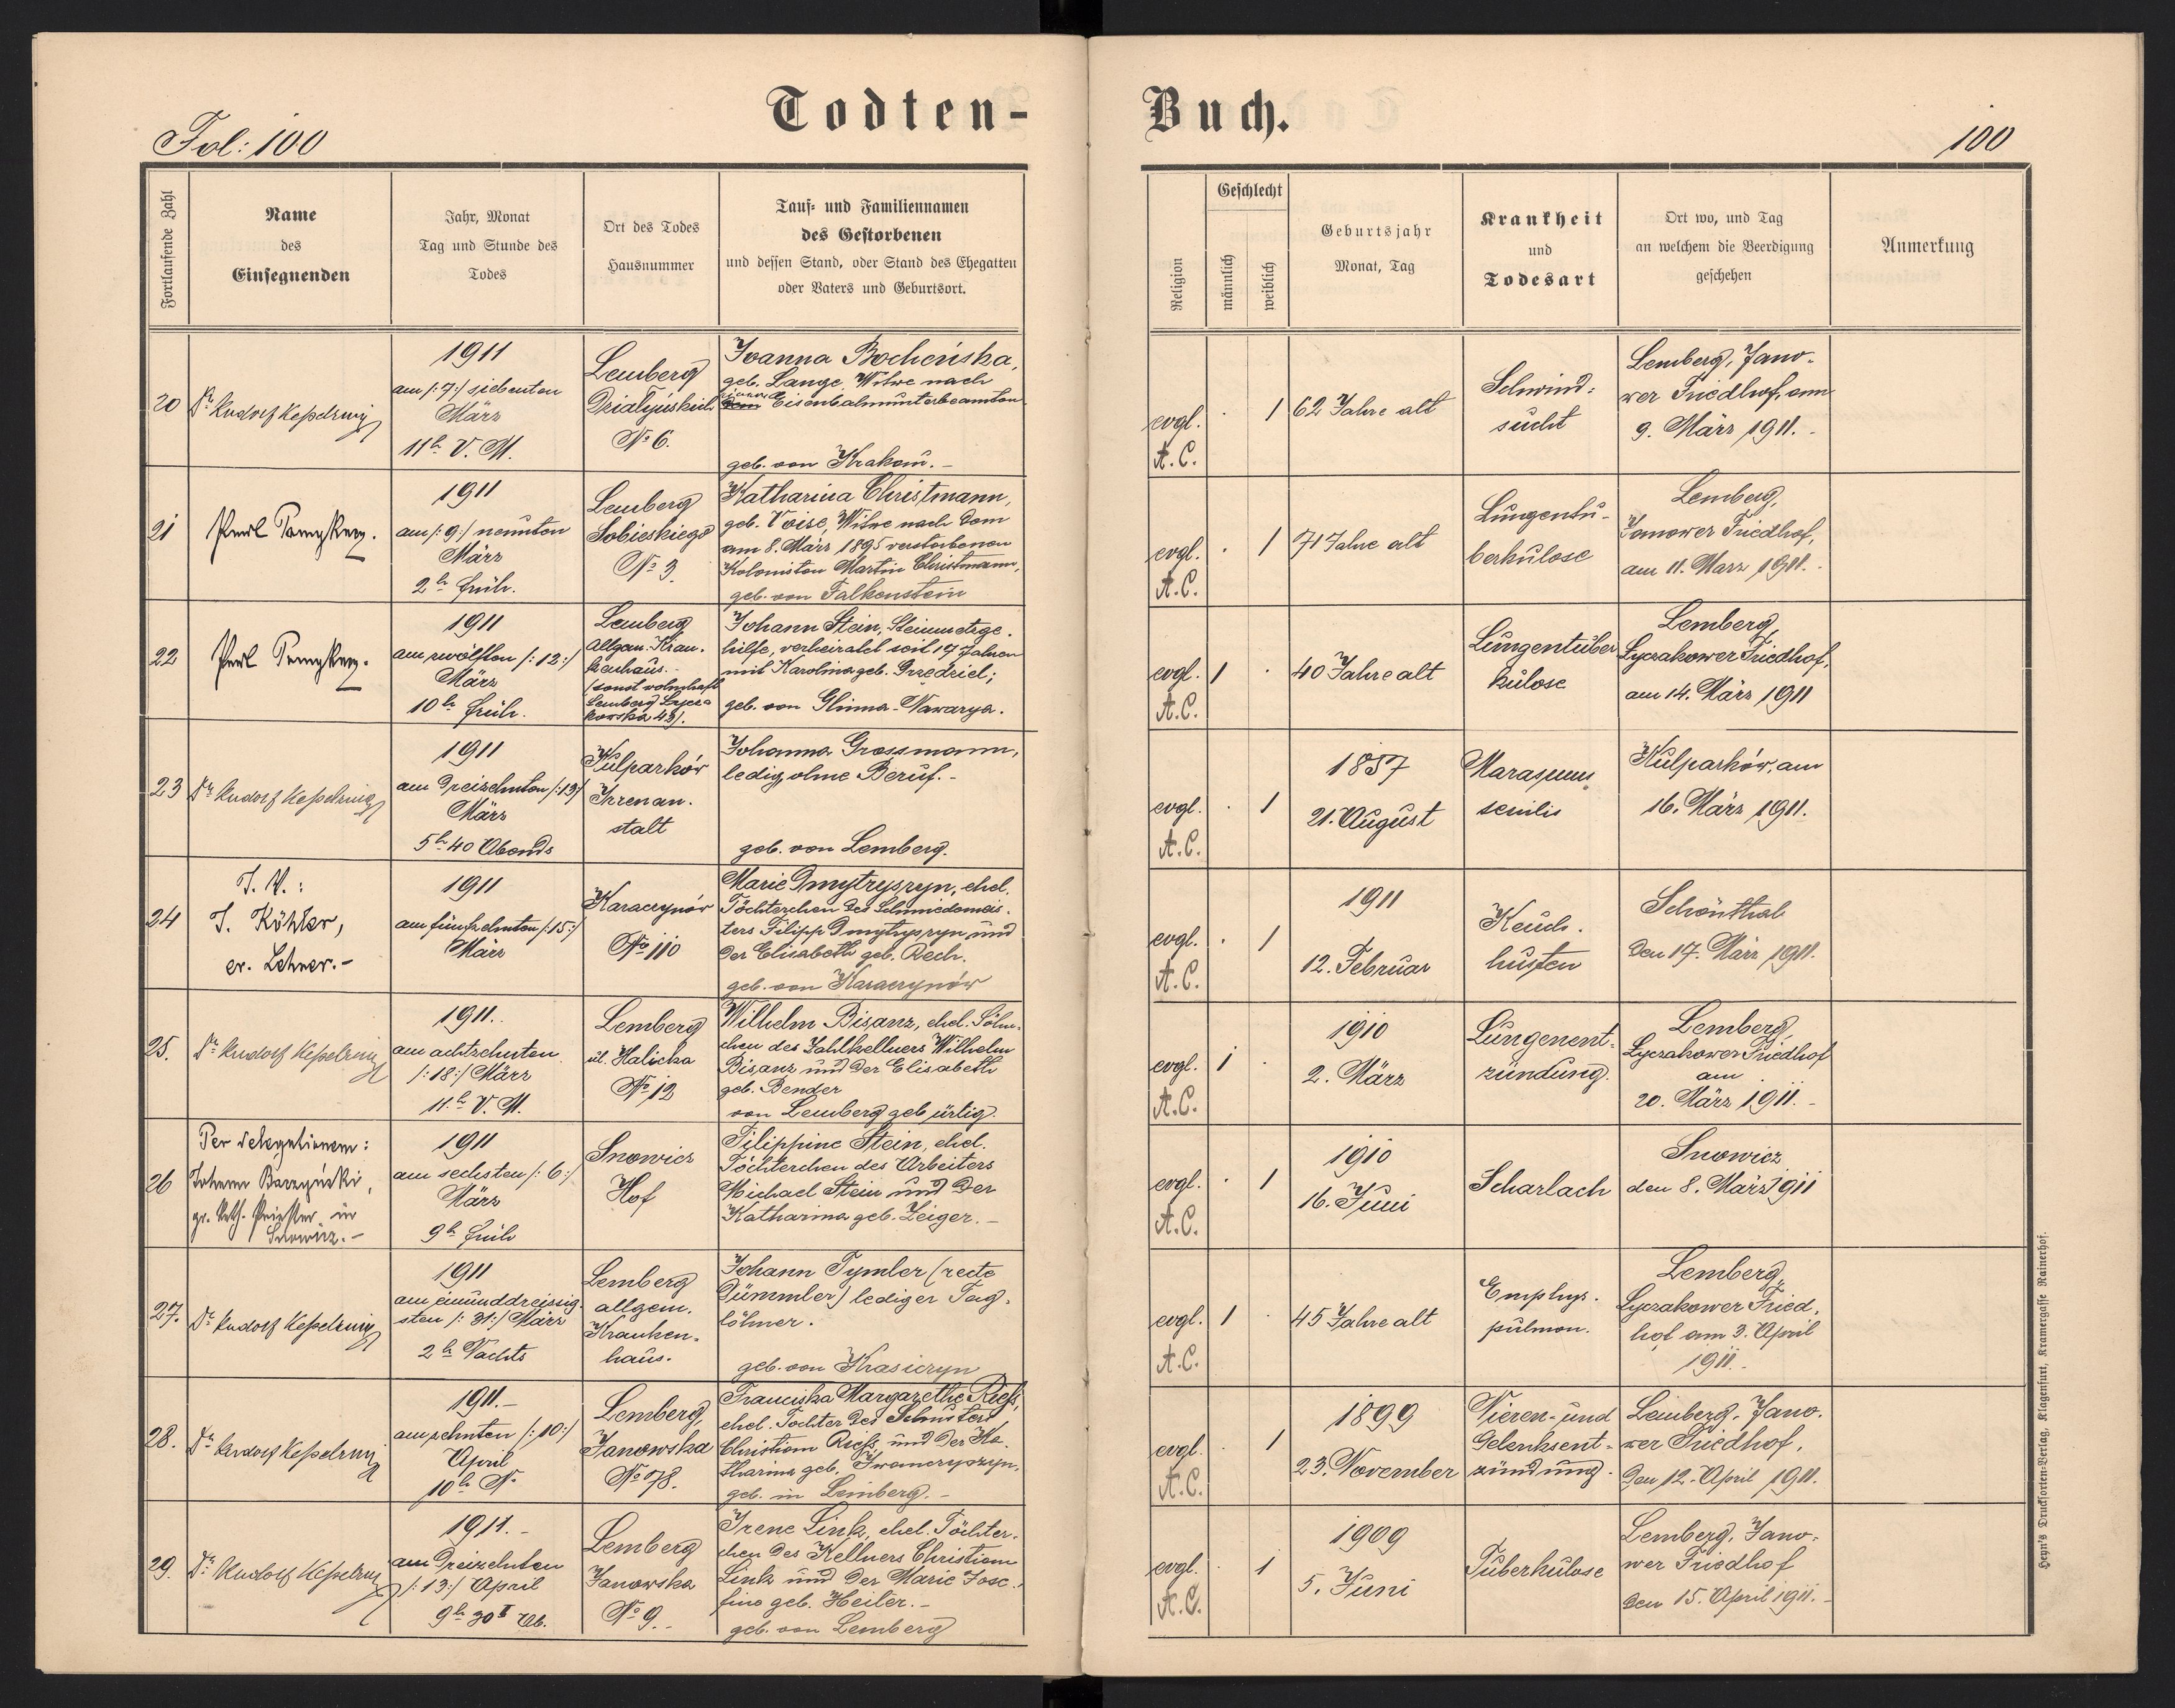 Todten-
Buch.
Fol: 100
100
Fortlaufende Zahl
Name
des
Einsegnenden
Jahr, Monat
Tag und Stunde des
Todes
Ort des Todes
Hausnummer
Tauf- und Familiennamen
des Gestorbenen
und dessen Stand, oder Stand des Ehegatten
oder Vaters und Geburtsort.
Religion
Geschlecht
männlich
weiblich
Geburtsjahr
Monat, Tag
Krankheit
und
Todesart
Ort wo, und Tag
an welchem die Beerdigung
geschehen
Anmerkung
20
Dr Rudolf Kesselring
1911
am /:7:/ siebenten
März
11h V. M.
Lemberg
No 6.
Joanna Bocheńska,
geb. Lange, Witwe nach
Eisenbahnunterbeamten
geb. von Krakau.-
evgl.
A.C.
.
1
62 Jahre alt
Schwind-
sucht
Lemberg, Jano-
wer Friedhof, am
9. März 1911.-
21
1911
am /:9:/ neunten
März
2h früh.
Lemberg
Sobieskiego
No 3.
Katharina Christmann,
geb. Voise, Witwe nach dem
am 8. März 1895 verstorbenen
Kolonisten Martin Christmann,
geb. von Falkenstein
evgl.
A.C.
.
1
71 Jahre alt
Lungentu-
berkulose
Lemberg,
Janower Friedhof,
am 11. März 1911.-
22
1911
am zwölften /:12:/
März
10h früh.
Lemberg
Allgem. Kran-
kenhaus.-
/sonst wohnhaft
Lemberg Lycza-
kowska 43/.
Johann Stein, Steinmetzge-
hilfe, verheiratet seit 17 Jahren
mit Karolina geb. Grzedziel;
geb. von Glinna-Nawarya.
evgl.
A.C.
1
.
40 Jahre alt
Lungentuber
kulose
Lemberg,
Lyczakower Friedhof,
am 14. März 1911
23
Dr Rudolf Kesselring
1911
am dreizehnten /:13/
März
5h 40 Abends
Kulparków
Irrenan-
stalt
Johanna Grossmann,
ledig, ohne Beruf.-
geb. von Lemberg.
evgl.
A.C.
.
1
1837
21. August
Marasmus
senilis
Kulparków, am
16. März 1911.
24
I. V.:
J. Köhler,
ev. Lehrer.-
1911
am fünfzehnten /:15:/
März
Karaczynów
No 110
Marie Dmytryszyn, ehel.
Töchterchen des Schmiedemeis-
ters Filipp Dmytryszyn und
der Elisabeth geb. Rech.
geb. von Karaczynów
evgl.
A.C.
.
1
1911
12. Februar
Keuch-
husten
Schönthal
den 17. März 1911.
25.
Dr Rudolf Kesselring
1911.
am achtzehnten
/:18:/ März
11h V. M.
Lemberg
ul. Halicka
No 12
Wilhelm Bisanz, ehel. Söhn-
chen des Zahlkellners Wilhelm
Bisanz und der Elisabeth
geb. Bender
von Lemberg gebürtig.
evgl.
A.C.
1
.
1910
2. März
Lungenent-
zündung.
Lemberg,
Lyczakower Friedhof
am
20. März 1911.-
26
Per delegationem:
Johann Barzyński,
gr. kath. Priester in
Snowicz.-
1911
am sechsten /:6:/
März
9h früh
Snowicz
Hof
Filippine Stein, ehel.
Töchterchen des Arbeiters
Michael Stein und der
Katharina geb. Zeiger.-
evgl.
A.C.
.
1
1910
16. Juni
Scharlach
Snowicz
den 8. März 1911
27.
Dr Rudolf Kesselring
1911
am einunddreissig-
sten /:31:/ März
2h Nachts
Lemberg
allgem.
Kranken-
haus.
Johann Tymler (recte
Dümmler) lediger Tag-
löhner.
geb. von Krasiczyn
evgl.
A.C.
1
.
45 Jahre alt
Emphys.
pulmon.
Lemberg,
Lyczakower Fried-
hof am 3. April
1911.-
28.
Dr Rudolf Kesselring
1911.-
am zehnten /:10:/
April
10h N.
Lemberg,
Janowska
No 78.
Franciska Margarethe Riess,
ehel. Tochter des Schusters
Christian Riess, und der Ka-
tharina geb. Iwanczyszyn,
geb. in Lemberg.-
evgl.
A.C.
.
1
1899
23. November
Nieren- und
Gelenksent-
zündung.
Lemberg, Jano-
wer Friedhof,
den 12. April 1911.
29.
Dr Rudolf Kesselring
1911.-
am dreizehnten
/:13:/ April
9h 30 Ab.
Lemberg
Janowska
No 9.-
Irene Link, ehel. Töchter-
chen des Kellners Christian
Link und der Marie Jose-
fine geb. Heiler.-
geb. von Lemberg
evgl.
A.C.
.
1
1909
5. Juni
Tuberkulose
Lemberg, Jano-
wer Friedhof
den 15. April 1911.-
Heyn's Drucksorten-Verlag, Klagenfurt, Kramergasse Rainerhof.